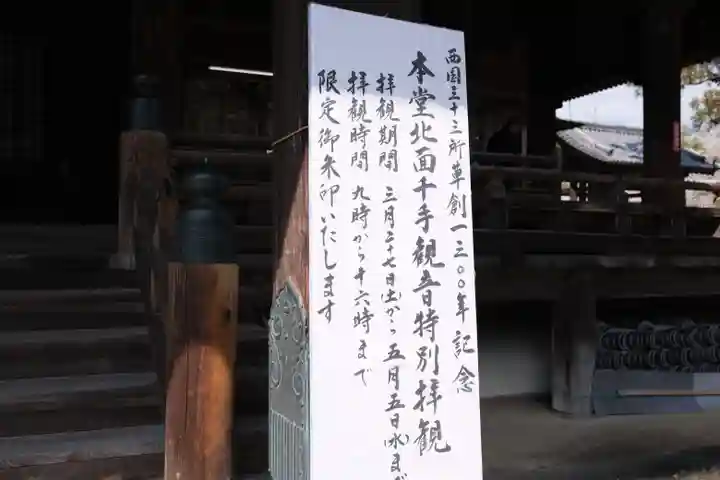 西国三十三所草創一三〇〇年 記念
本堂北面千手観音特別拝観
拝観期間 三月二十七日(土)から五月五日(水)まで
拝観時間 九時から十六時まで
限定御朱印いたします